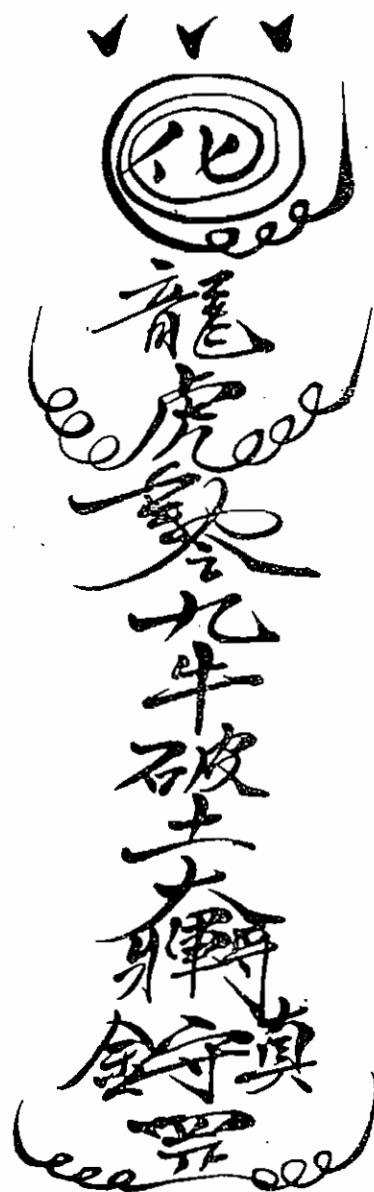 化
龍
虎
九
牛
破
土
大
將軍
鎮守